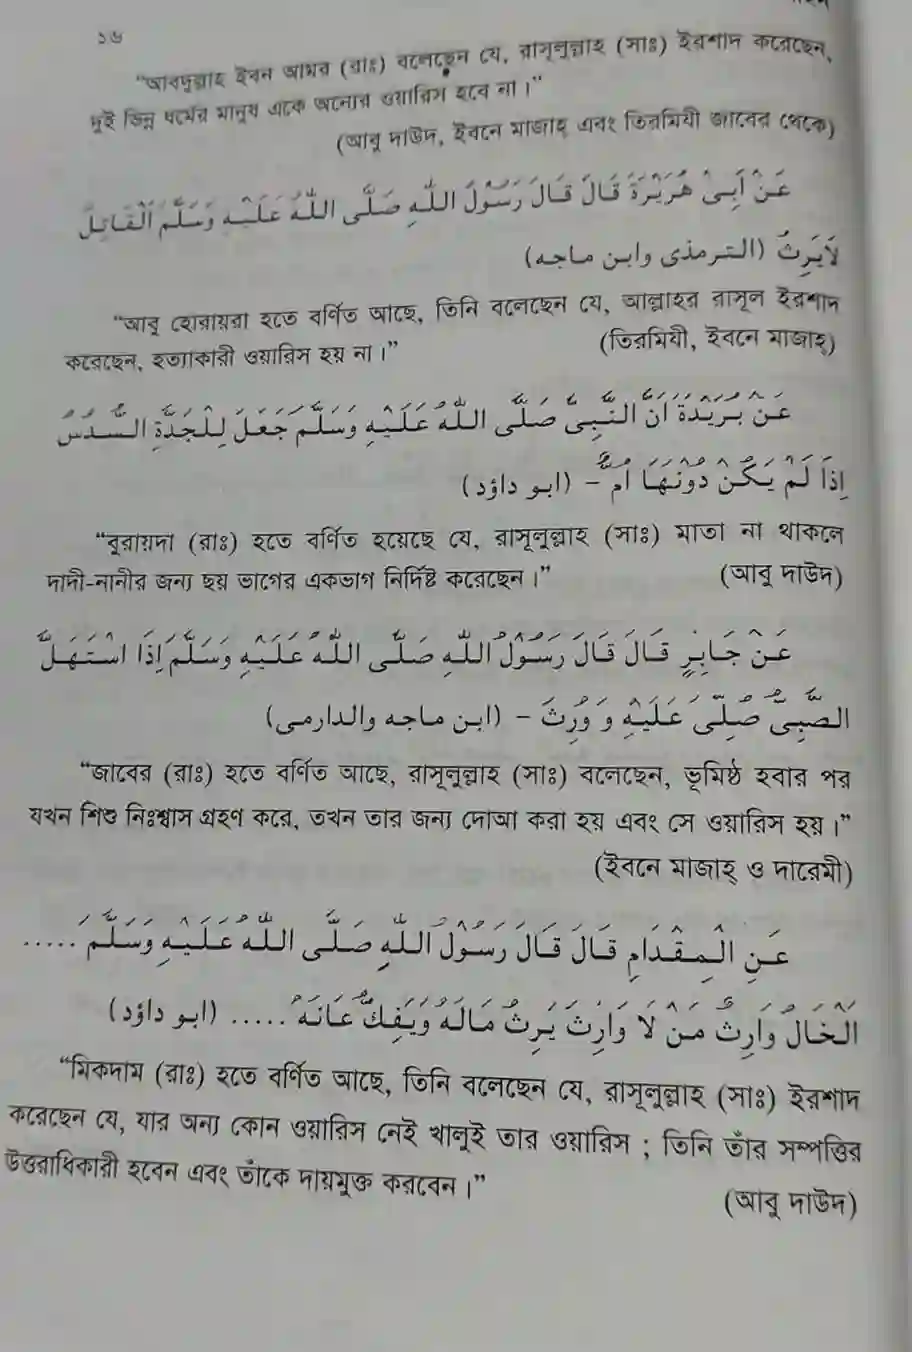 ১৬
“আবদুল্লাহ ইবন আমর (রাঃ) বলেছেন যে, রাসূলুল্লাহ (সাঃ) ইরশাদ করেছেন,
দুই ভিন্ন ধর্মের মানুষ একে অন্যের ওয়ারিস হবে না।”
(আবু দাউদ, ইবনে মাজাহ্ এবং তিরমিযী জাবের থেকে)
عَنْ أَبِىْ هُرَيْرَةَ قَالَ قَالَ رَسُوْلُ اللّٰهِ صَلَّى اللّٰهُ عَلَيْهِ وَسَلَّمَ اَلْقَاتِلُ
لَايَرِثُ (الترمذى وابن ماجه)
“আবু হোরায়রা হতে বর্ণিত আছে, তিনি বলেছেন যে, আল্লাহর রাসূল ইরশাদ
করেছেন, হত্যাকারী ওয়ারিস হয় না।” (তিরমিযী, ইবনে মাজাহ্)
عَنْ بُرَيْدَةَ اَنَّ النَّبِىَّ صَلَّى اللّٰهُ عَلَيْهِ وَسَلَّمَ جَعَلَ لِلْجَدَّةِ السُّدُسَ
اِذَا لَمْ يَكُنْ دُوْنَهَا اُمٌّ – (ابو داؤد)
“বুরায়দা (রাঃ) হতে বর্ণিত হয়েছে যে, রাসূলুল্লাহ (সাঃ) মাতা না থাকলে
দাদী-নানীর জন্য ছয় ভাগের একভাগ নির্দিষ্ট করেছেন।” (আবু দাউদ)
عَنْ جَابِرٍ قَالَ قَالَ رَسُوْلُ اللّٰهِ صَلَّى اللّٰهُ عَلَيْهِ وَسَلَّمَ اِذَا اسْتَهَلَّ
الصَّبِىُّ صُلِّىَ عَلَيْهِ وَ وُرِثَ – (ابن ماجه والدارمى)
“জাবের (রাঃ) হতে বর্ণিত আছে, রাসূলুল্লাহ (সাঃ) বলেছেন, ভূমিষ্ঠ হবার পর
যখন শিশু নিঃশ্বাস গ্রহণ করে, তখন তার জন্য দোআ করা হয় এবং সে ওয়ারিস হয়।”
(ইবনে মাজাহ্ ও দারেমী)
عَنِ الْمِقْدَامِ قَالَ قَالَ رَسُوْلُ اللّٰهِ صَلَّى اللّٰهُ عَلَيْهِ وَسَلَّمَ .....
اَلْخَالُ وَارِثُ مَنْ لَا وَارِثَ يَرِثُ مَالَهُ وَيَفِكُّ عَانَهُ ..... (ابو داؤد)
“মিকদাম (রাঃ) হতে বর্ণিত আছে, তিনি বলেছেন যে, রাসূলুল্লাহ (সাঃ) ইরশাদ
করেছেন যে, যার অন্য কোন ওয়ারিস নেই খালুই তার ওয়ারিস ; তিনি তাঁর সম্পত্তির
উত্তরাধিকারী হবেন এবং তাঁকে দায়মুক্ত করবেন।” (আবু দাউদ)